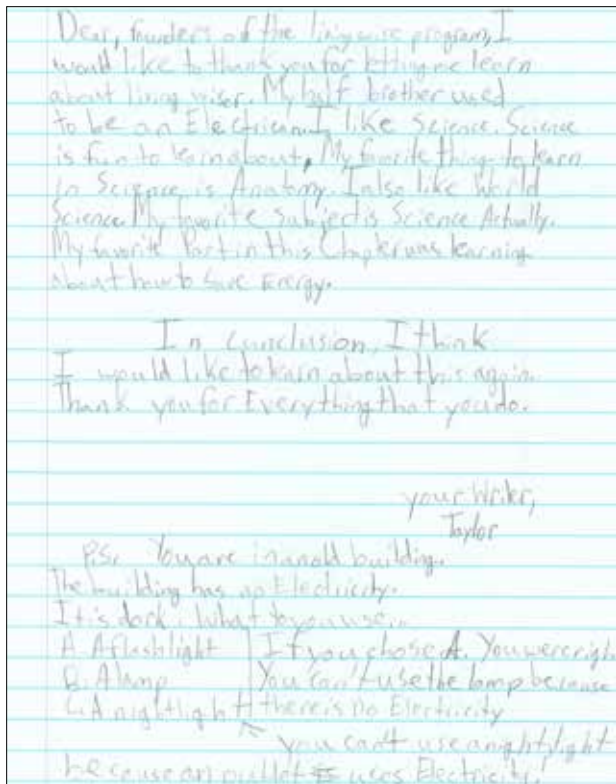 Dear, founders of the livingwise program, I
would like to thank you for letting me learn
about living wiser. My half brother used
to be an Electrician. I like Science. Science
is fun to learn about. My favorite thing to learn
in Science is Anatomy. I also like World
Science. My favorite subject is Science Actually.
My favorite Part in this Chapter was learning
about how to save Energy.
In conclusion, I think
I would like to learn about this again.
Thank you for Everything that you do.
your Writer,
Taylor
P.S. You are in an old building.
The building has no Electricity.
It is dark. What do you use...
A. A flashlight If you chose A. You were right
B. A lamp You can't use the lamp because
C. A nightlight there is no Electricity
you can't use a nightlight
because an outlet uses Electricity!